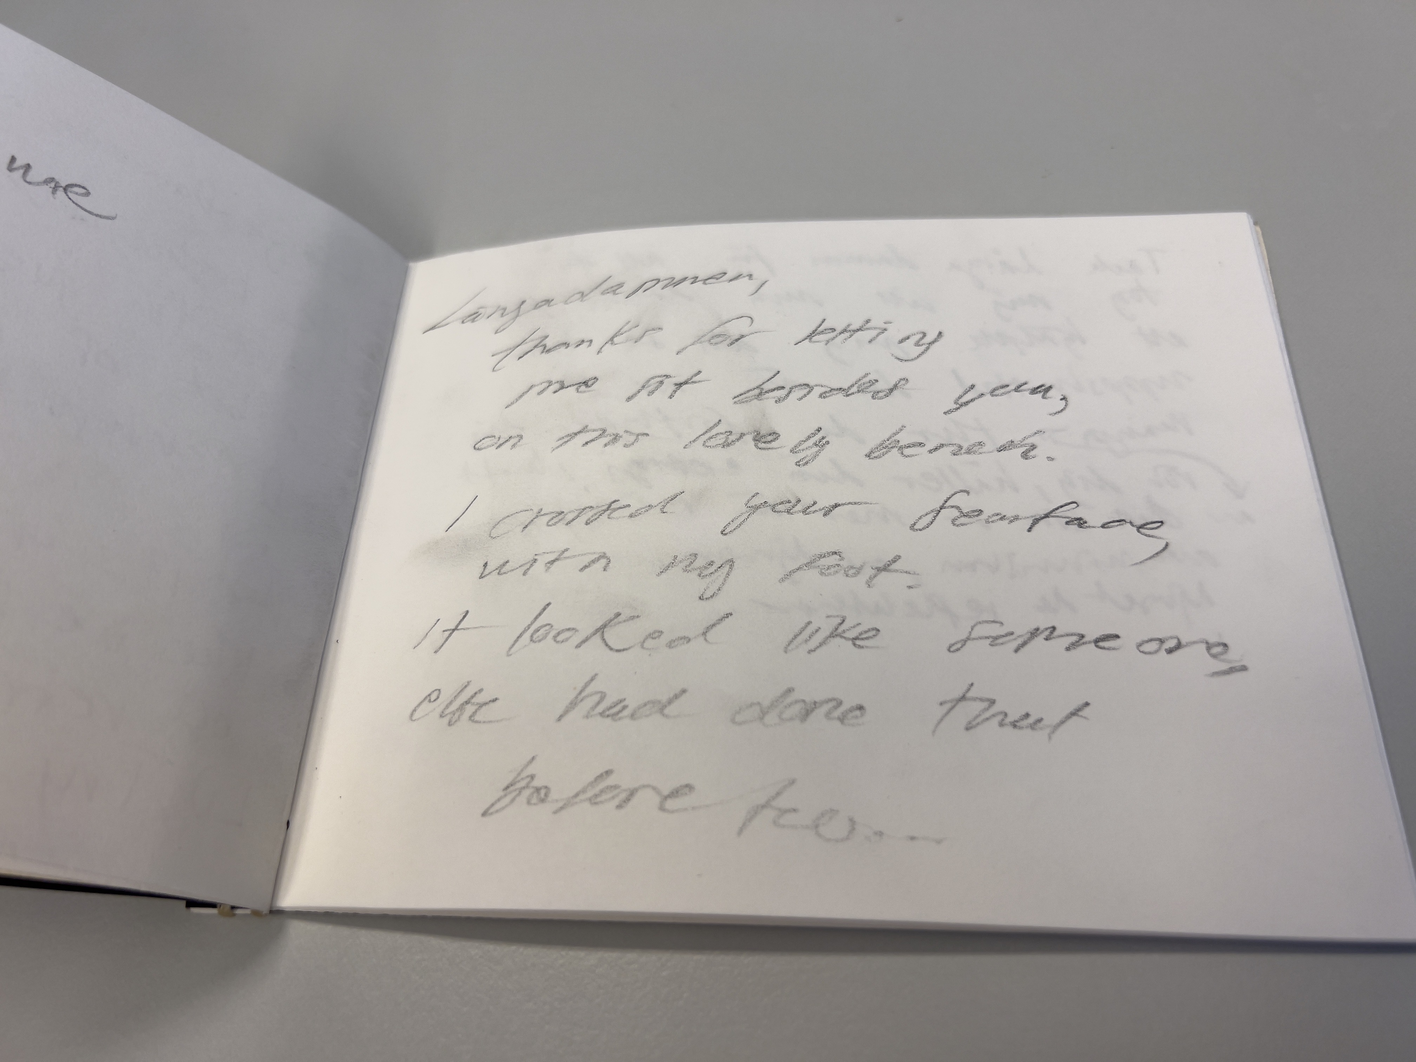 me
Långadammen,
thanks for letting
me sit besides you,
on this lovely bench.
I crossed your
with my foot.
It looked like someone,
else had done that
before too....